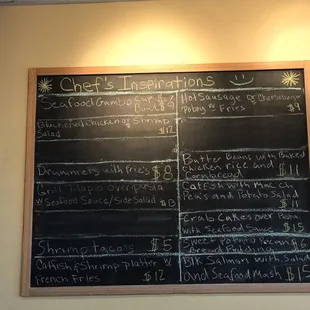 Chef's Inspirations
Seafood Gumbo Cup $
Bowl $9
Blackened Chicken or Shrimp
Salad $12
Drummers with Fries $8
Grill Tilapia over Pasta
w Seafood Sauce/Side Salad $13
Shrimp Tacos $5
Catfish & Shrimp Platter w
French Fries $12
Hot Sausage or Cheeseburger
Poboy w Fries $9
Butter Beans with Baked
Chicken rice and
Cornbread $11
Catfish with Mac Ch
Peas and Potato Salad
$11
Crab Cakes over Pasta
with Seafood Sauce $15
Sweet Potato Pecan
Bread Pudding $6
Blk Salmon with Salad
and Seafood Mash $15